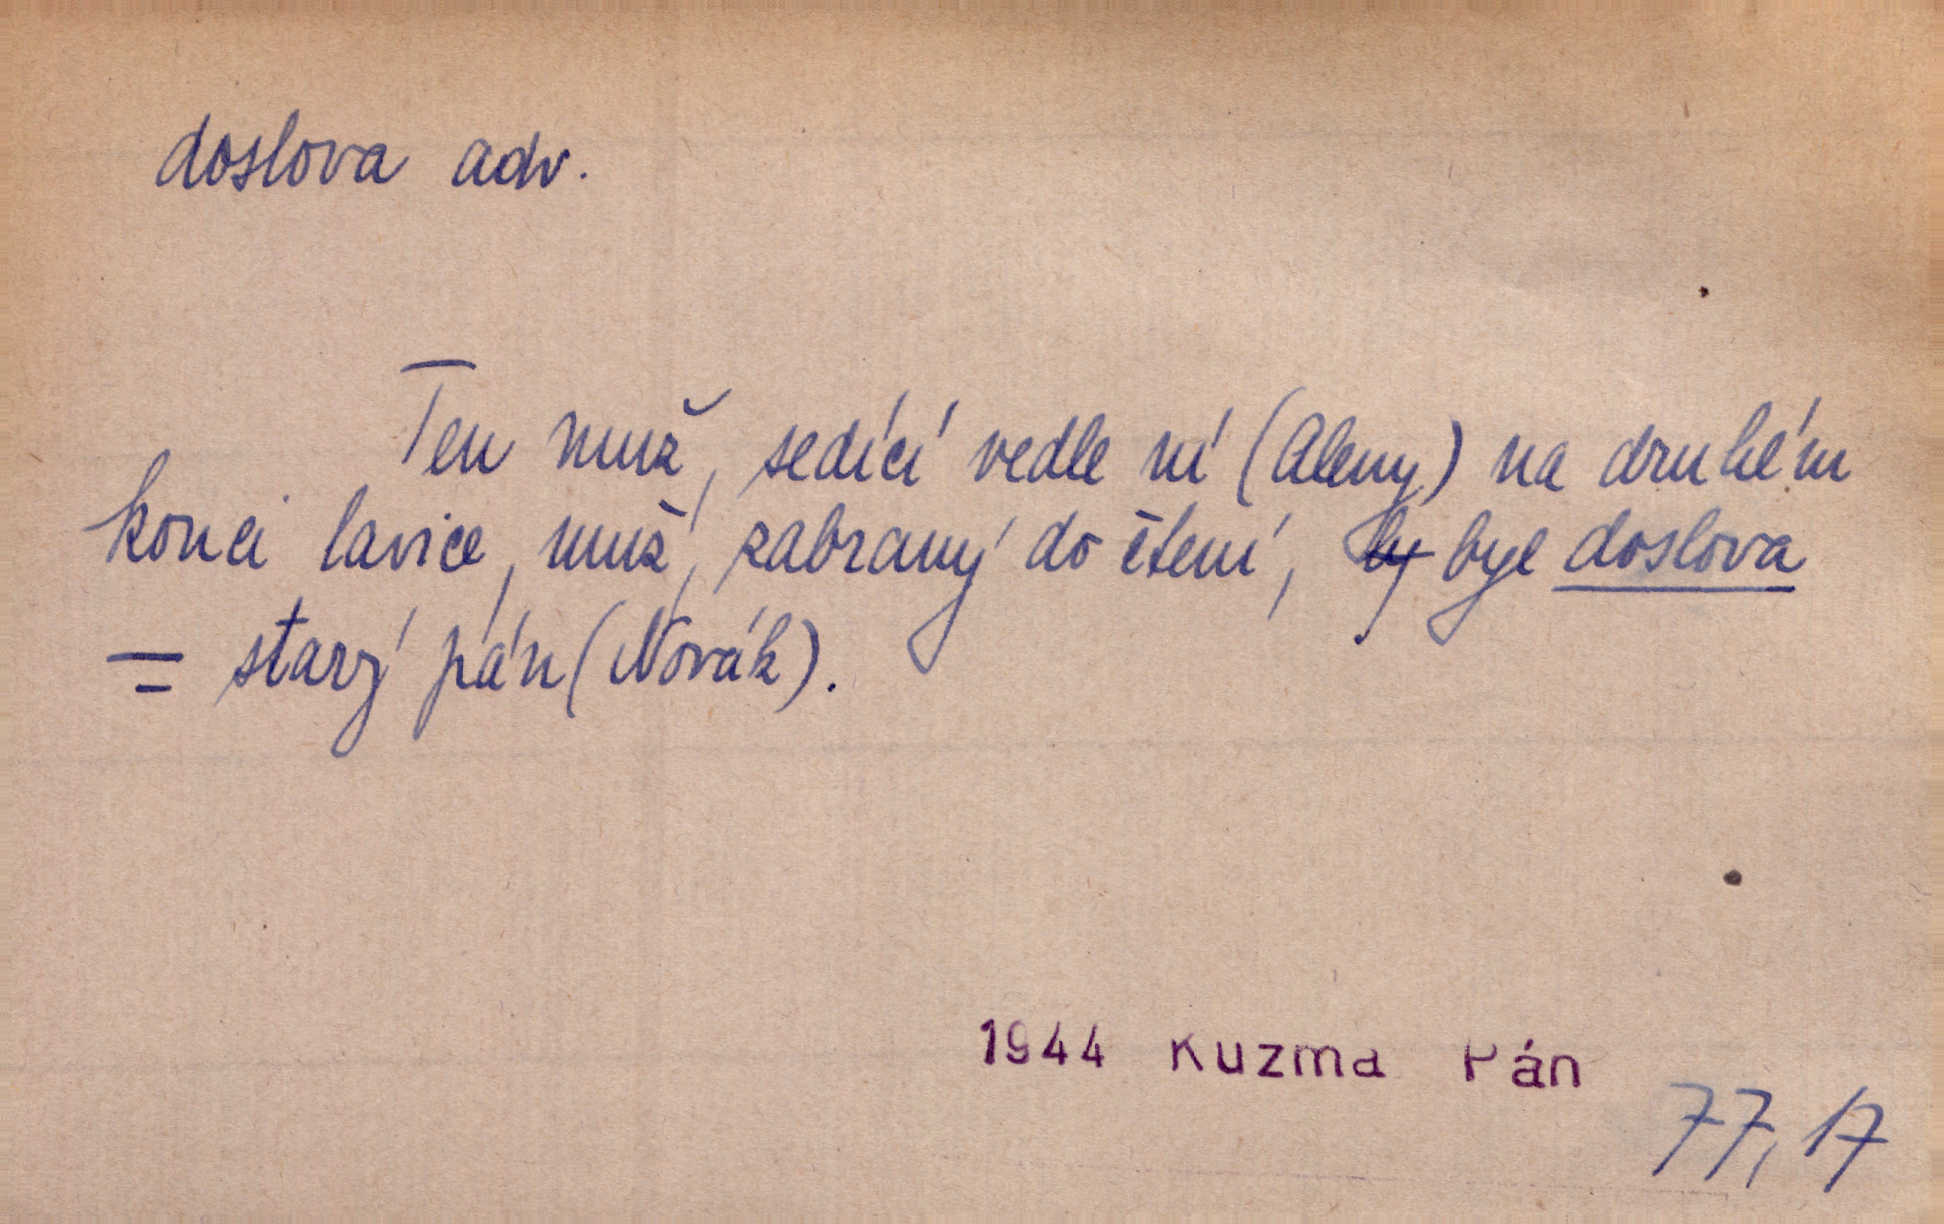 doslova adv.
Ten muž, sedící vedle ní (Aleny) na druhém
konci lavice, muž, zabraný do čtení, by byl doslova
= starý pán (Novák).
1944 Kuzma Pán
77, 17